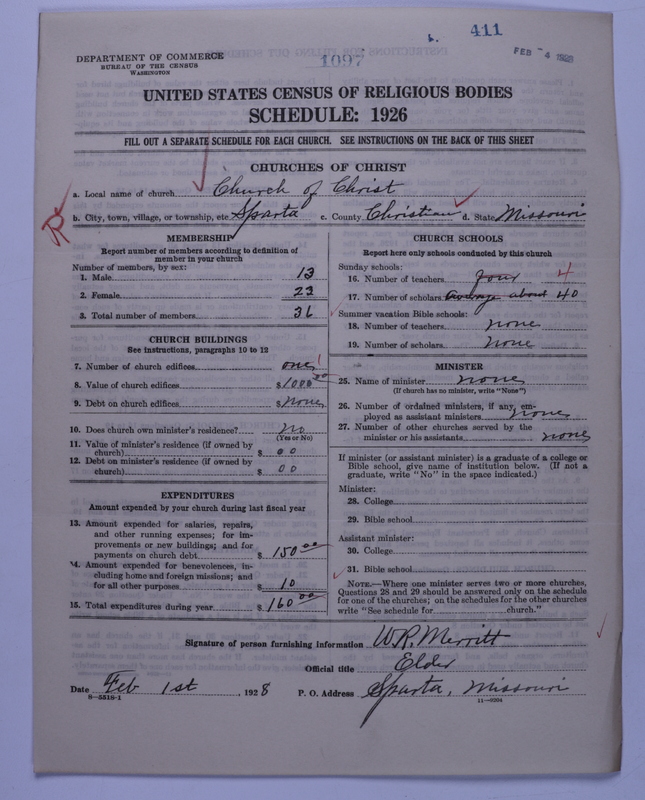 411
FEB - 4 1928
1097
DEPARTMENT OF COMMERCE
BUREAU OF THE CENSUS
WASHINGTON
UNITED STATES CENSUS OF RELIGIOUS BODIES
SCHEDULE: 1926
FILL OUT A SEPARATE SCHEDULE FOR EACH CHURCH. SEE INSTRUCTIONS ON THE BACK OF THIS SHEET
CHURCHES OF CHRIST
a. Local name of church Church of Christ
b. City, town, village, or township, etc. Sparta c. County Christian d. State Missouri
R
MEMBERSHIP
Report number of members according to definition of
member in your church
Number of members, by sex:
1. Male 13
2. Female 23
3. Total number of members 36
CHURCH BUILDINGS
See instructions, paragraphs 10 to 12
7. Number of church edifices one 1
8. Value of church edifices $1000 00
9. Debt on church edifices $ None
10. Does church own minister's residence? No
(Yes or No)
11. Value of minister's residence (if owned by
church) $ 00
12. Debt on minister's residence (if owned by
church) $ 00
EXPENDITURES
Amount expended by your church during last fiscal year
13. Amount expended for salaries, repairs,
and other running expenses; for im-
provements or new buildings; and for
payments on church debt $ 150 00
14. Amount expended for benevolences, in-
cluding home and foreign missions; and
for all other purposes $ 10
15. Total expenditures during year $ 160 00
CHURCH SCHOOLS
Report here only schools conducted by this church
Sunday schools:
16. Number of teachers four 4
17. Number of scholars average about 40
Summer vacation Bible schools:
18. Number of teachers none
19. Number of scholars none
MINISTER
25. Name of minister none
(If church has no minister, write "None")
26. Number of ordained ministers, if any, em-
ployed as assistant ministers none
27. Number of other churches served by the
minister or his assistants none
If minister (or assistant minister) is a graduate of a college or
Bible school, give name of institution below. (If not a
graduate, write "No" in the space indicated.)
Minister:
28. College
29. Bible school
Assistant minister:
30. College
31. Bible school
NOTE.—Where one minister serves two or more churches,
Questions 28 and 29 should be answered only on the schedule
for one of the churches; on the schedules for the other churches
write "See schedule for church."
Signature of person furnishing information W.R. Merritt
Official title Elder
Date Feb 1st, 1928 P. O. Address Sparta, Missouri
8—5518-1
11—9204